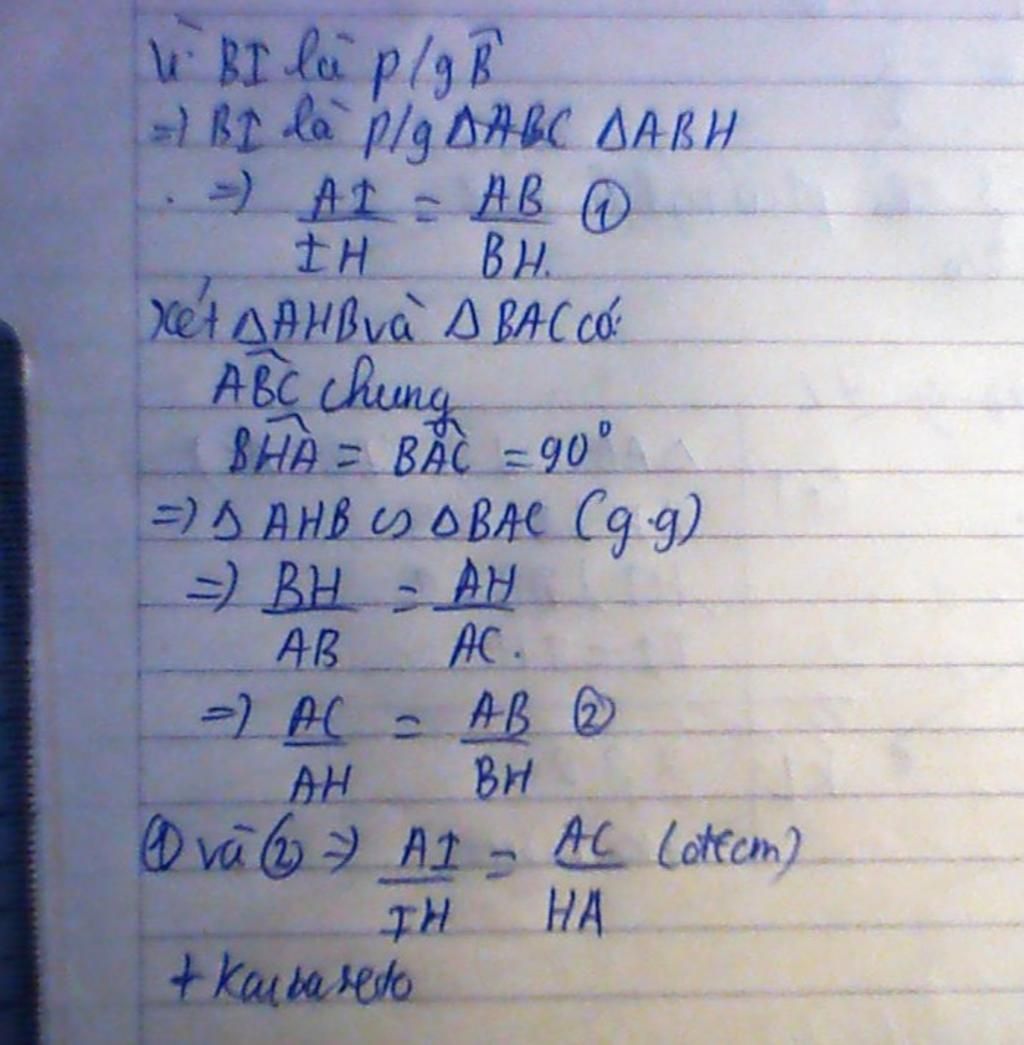 Vì BI là p/g B̂
=) BI là p/g ΔABC ΔABH
=) AI/IH = AB/BH. ①
Xét ΔAHB và ΔBAC có:
ABC chung
BHA = BAC = 90°
=) Δ AHB ∽ ΔBAC (g.g)
=) BH/AB = AH/AC.
=) AC/AH = AB/BH ②
① và ② => AI/IH = AC/HA (đccm)